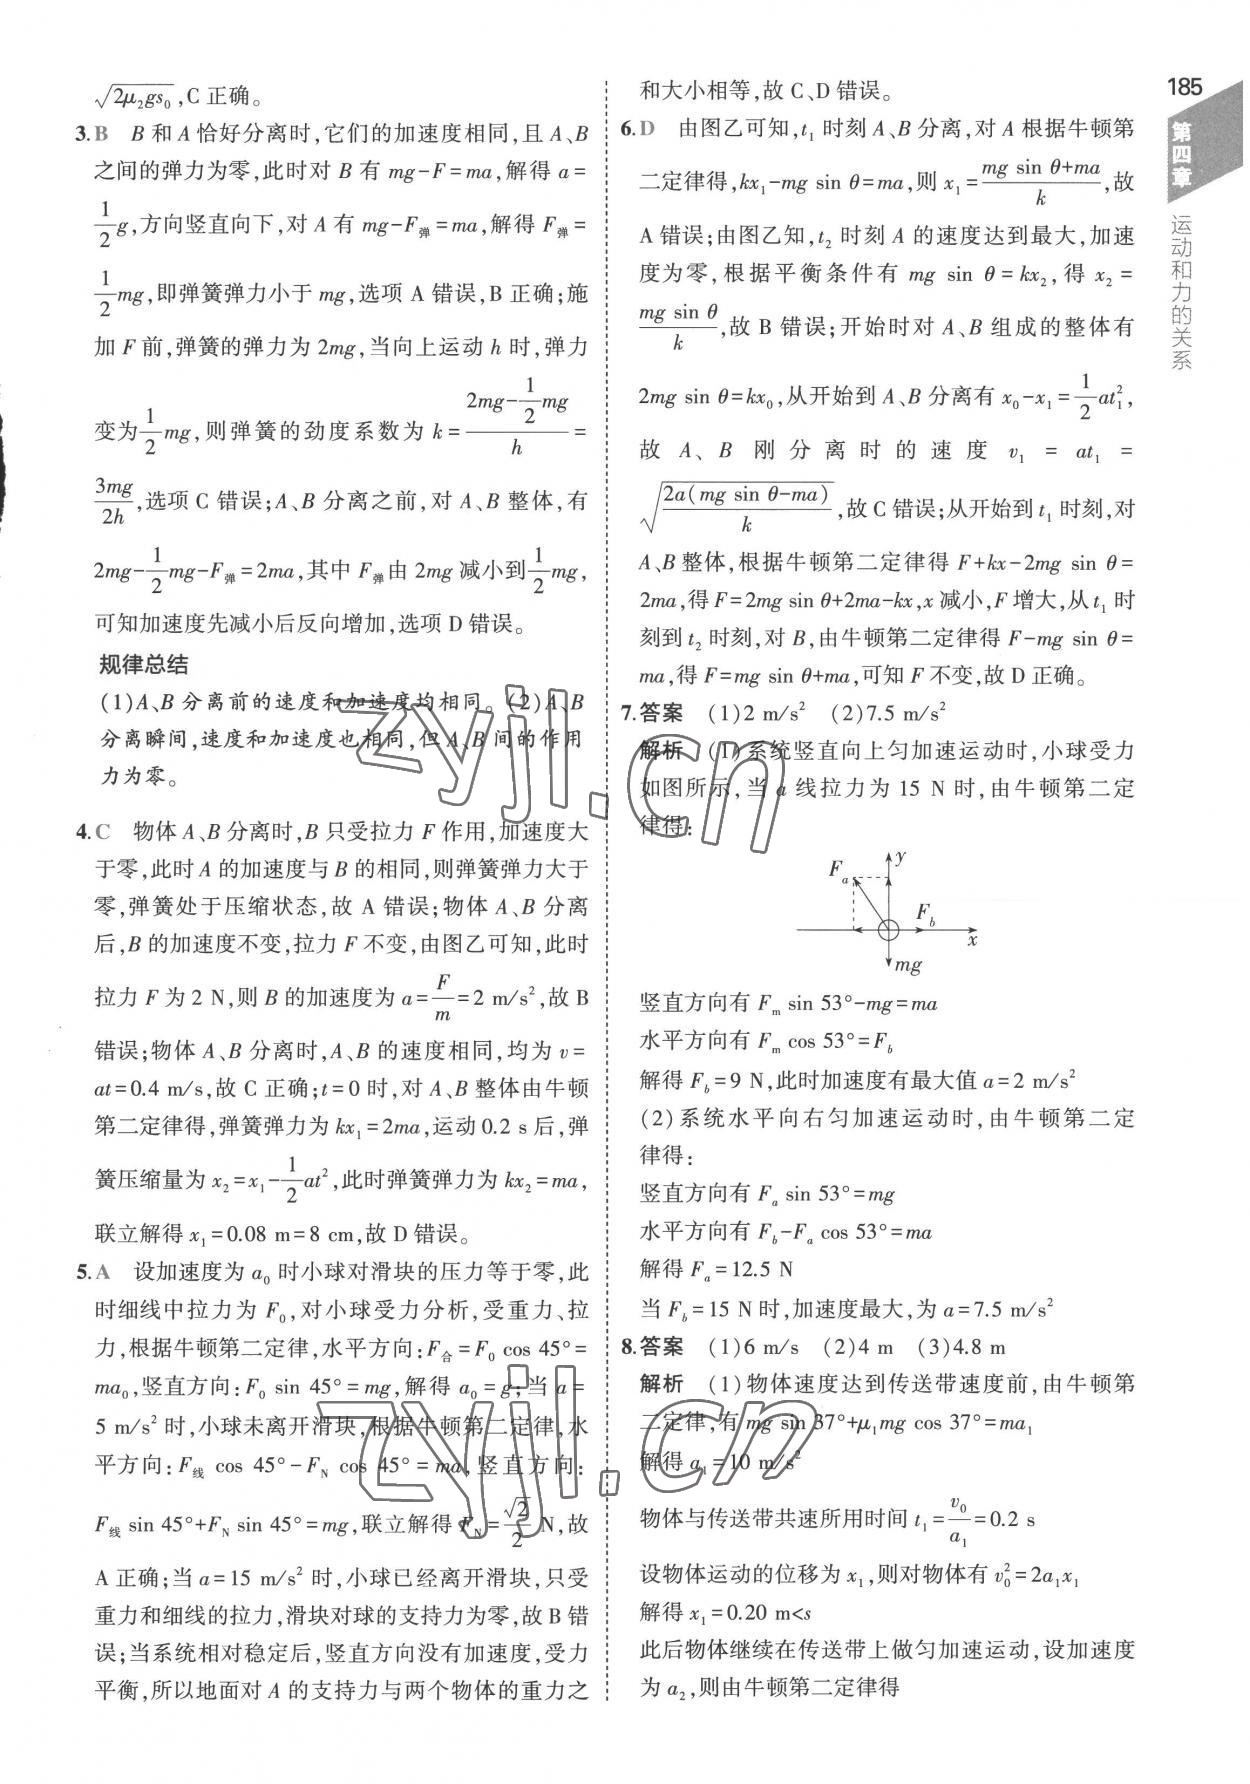 185
第四章
运动和力的关系
√(2μ₂gs₀),C 正确。
3.B B 和 A 恰好分离时,它们的加速度相同,且 A、B
之间的弹力为零,此时对 B 有 mg-F=ma,解得 a=
1/2 g,方向竖直向下,对 A 有 mg-F弹=ma,解得 F弹=
1/2 mg,即弹簧弹力小于 mg,选项 A 错误,B 正确;施
加 F 前,弹簧的弹力为 2mg,当向上运动 h 时,弹力
变为 1/2 mg,则弹簧的劲度系数为 k=(2mg-1/2 mg)/h=
3mg/2h,选项 C 错误;A、B 分离之前,对 A、B 整体,有
2mg-1/2 mg-F弹=2ma,其中 F弹由 2mg 减小到 1/2 mg,
可知加速度先减小后反向增加,选项 D 错误。
规律总结
(1)A、B 分离前的速度和加速度均相同。(2)A、B
分离瞬间,速度和加速度也相同,但 A、B 间的作用
力为零。
4.C 物体 A、B 分离时,B 只受拉力 F 作用,加速度大
于零,此时 A 的加速度与 B 的相同,则弹簧弹力大于
零,弹簧处于压缩状态,故 A 错误;物体 A、B 分离
后,B 的加速度不变,拉力 F 不变,由图乙可知,此时
拉力 F 为 2 N,则 B 的加速度为 a=F/m=2 m/s²,故 B
错误;物体 A、B 分离时,A、B 的速度相同,均为 v=
at=0.4 m/s,故 C 正确;t=0 时,对 A、B 整体由牛顿
第二定律得,弹簧弹力为 kx₁=2ma,运动 0.2 s 后,弹
簧压缩量为 x₂=x₁-1/2 at²,此时弹簧弹力为 kx₂=ma,
联立解得 x₁=0.08 m=8 cm,故 D 错误。
5.A 设加速度为 a₀ 时小球对滑块的压力等于零,此
时细线中拉力为 F₀,对小球受力分析,受重力、拉
力,根据牛顿第二定律,水平方向:F合=F₀ cos 45°=
ma₀,竖直方向:F₀ sin 45°=mg,解得 a₀=g;当 a=
5 m/s² 时,小球未离开滑块,根据牛顿第二定律,水
平方向:F线 cos 45°-F_N cos 45°=ma,竖直方向:
F线 sin 45°+F_N sin 45°=mg,联立解得 F_N=√2/2 N,故
A 正确;当 a=15 m/s² 时,小球已经离开滑块,只受
重力和细线的拉力,滑块对球的支持力为零,故 B 错
误;当系统相对稳定后,竖直方向没有加速度,受力
平衡,所以地面对 A 的支持力与两个物体的重力之
和大小相等,故 C、D 错误。
6.D 由图乙可知,t₁ 时刻 A、B 分离,对 A 根据牛顿第
二定律得,kx₁-mg sin θ=ma,则 x₁=(mg sin θ+ma)/k,故
A 错误;由图乙知,t₂ 时刻 A 的速度达到最大,加速
度为零,根据平衡条件有 mg sin θ=kx₂,得 x₂=
mg sin θ/k,故 B 错误;开始时对 A、B 组成的整体有
2mg sin θ=kx₀,从开始到 A、B 分离有 x₀-x₁=1/2 at₁²,
故 A、B 刚分离时的速度 v₁=at₁=
√(2a(mg sin θ-ma)/k),故 C 错误;从开始到 t₁ 时刻,对
A、B 整体,根据牛顿第二定律得 F+kx-2mg sin θ=
2ma,得 F=2mg sin θ+2ma-kx,x 减小,F 增大,从 t₁ 时
刻到 t₂ 时刻,对 B,由牛顿第二定律得 F-mg sin θ=
ma,得 F=mg sin θ+ma,可知 F 不变,故 D 正确。
7.答案 (1)2 m/s² (2)7.5 m/s²
解析 (1)系统竖直向上匀加速运动时,小球受力
如图所示,当 a 线拉力为 15 N 时,由牛顿第二定
律得:
y
F_a
F_b
x
mg
竖直方向有 F_m sin 53°-mg=ma
水平方向有 F_m cos 53°=F_b
解得 F_b=9 N,此时加速度有最大值 a=2 m/s²
(2)系统水平向右匀加速运动时,由牛顿第二定
律得:
竖直方向有 F_a sin 53°=mg
水平方向有 F_b-F_a cos 53°=ma
解得 F_a=12.5 N
当 F_b=15 N 时,加速度最大,为 a=7.5 m/s²
8.答案 (1)6 m/s (2)4 m (3)4.8 m
解析 (1)物体速度达到传送带速度前,由牛顿第
二定律,有 mg sin 37°+μ₁mg cos 37°=ma₁
解得 a₁=10 m/s²
物体与传送带共速所用时间 t₁=v₀/a₁=0.2 s
设物体运动的位移为 x₁,则对物体有 v₀²=2a₁x₁
解得 x₁=0.20 m<s
此后物体继续在传送带上做匀加速运动,设加速度
为 a₂,则由牛顿第二定律得
zyjl.cn
zyjl.cn